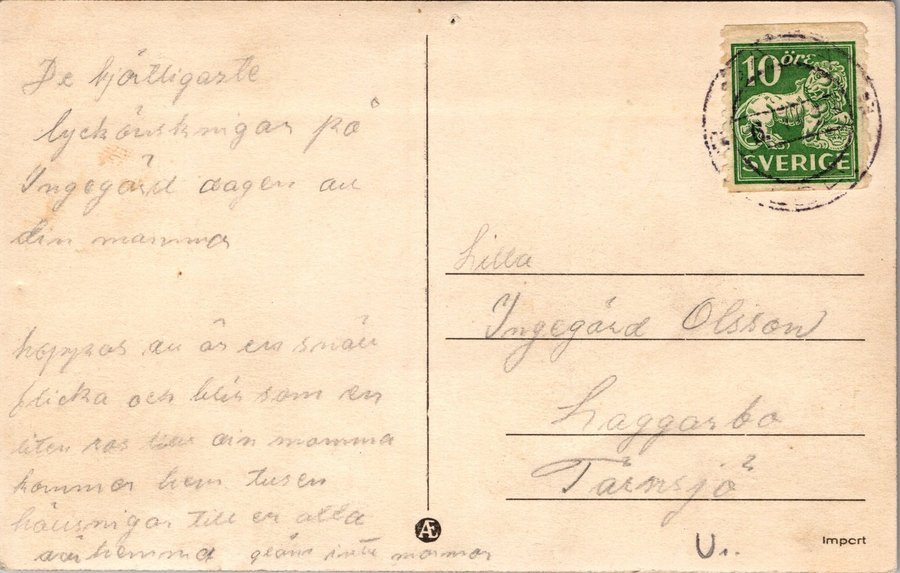 De hjärtligaste
lyckönsknigar på
Ingegärd dagen av
din mamma
hoppas du är en snäll
flicka och blir som en
liten ros din mamma
kommer hem tusen
hälsnigar till er alla
där hemma glöm inte mormor
10 öre
SVERIGE
Lilla
Ingegärd Olsson
Laggarbo
Tärnsjö
Æ
U..
Import